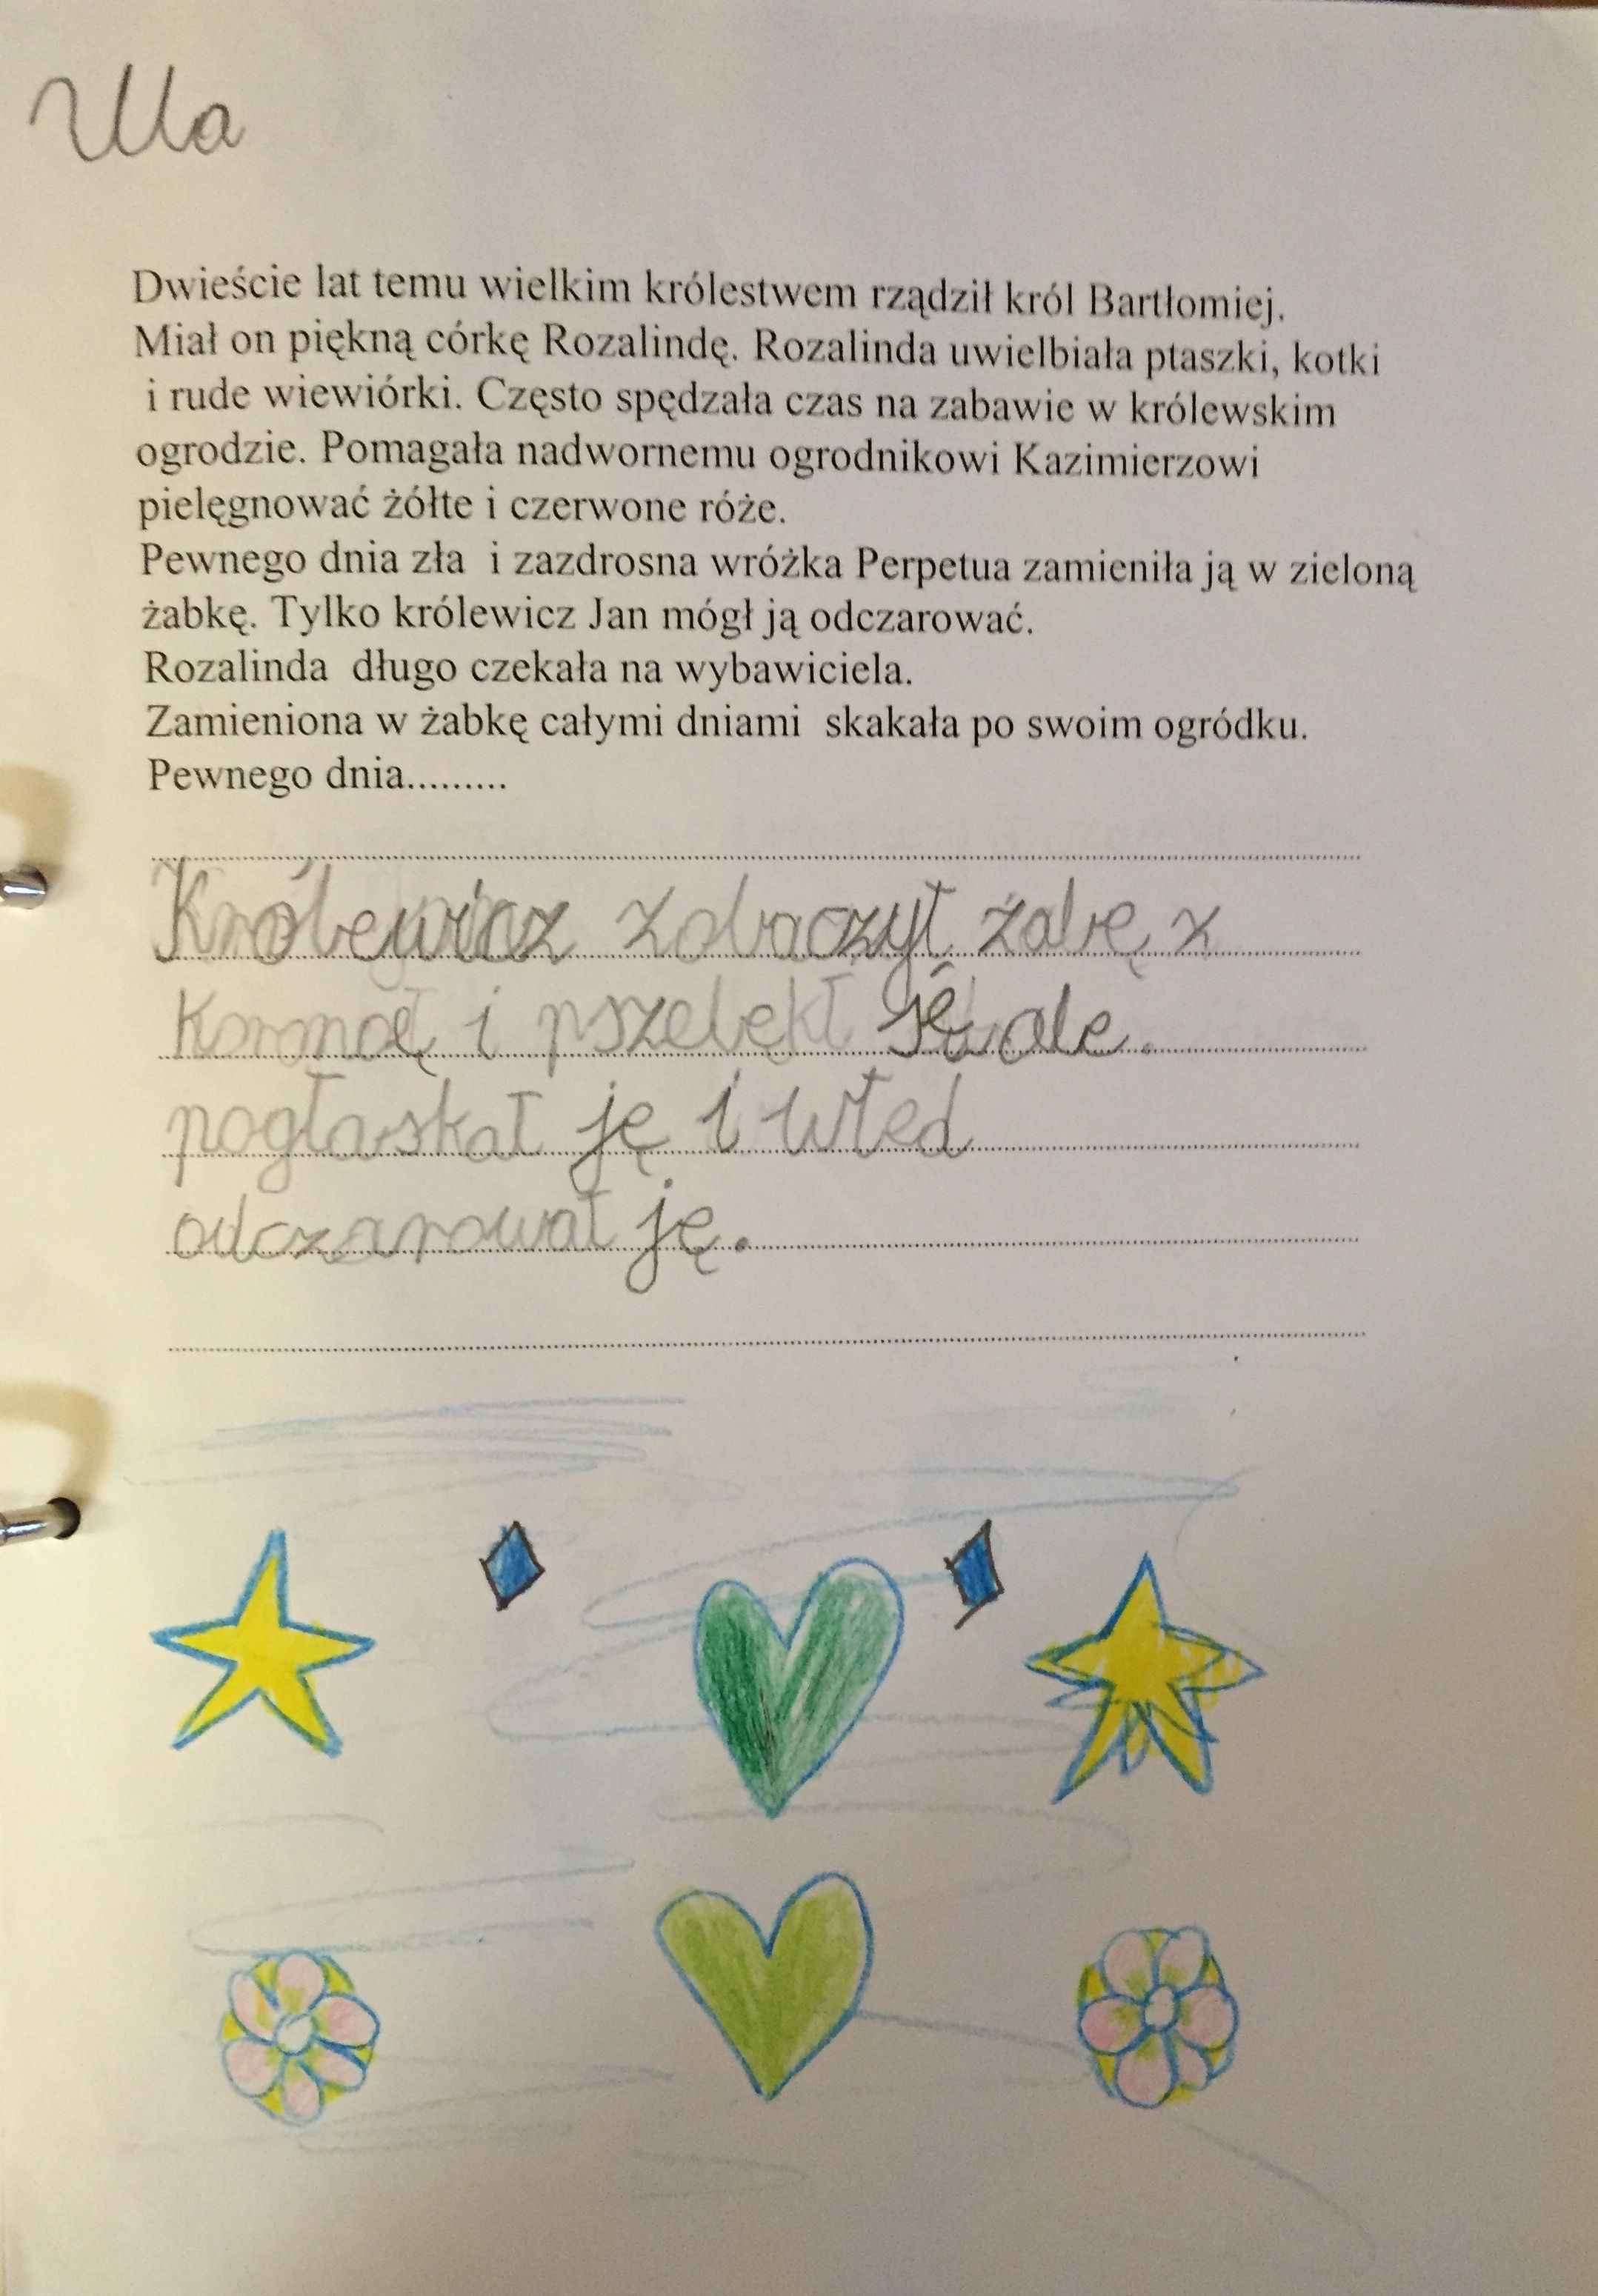 Ula
Dwieście lat temu wielkim królestwem rządził król Bartłomiej.
Miał on piękną córkę Rozalindę. Rozalinda uwielbiała ptaszki, kotki
i rude wiewiórki. Często spędzała czas na zabawie w królewskim
ogrodzie. Pomagała nadwornemu ogrodnikowi Kazimierzowi
pielęgnować żółte i czerwone róże.
Pewnego dnia zła i zazdrosna wróżka Perpetua zamieniła ją w zieloną
żabkę. Tylko królewicz Jan mógł ją odczarować.
Rozalinda długo czekała na wybawiciela.
Zamieniona w żabkę całymi dniami skakała po swoim ogródku.
Pewnego dnia.........
Królewicz zobaczył żabę z
i pszelękł ale.
pogłaskał ję i wted
odczarował ję.